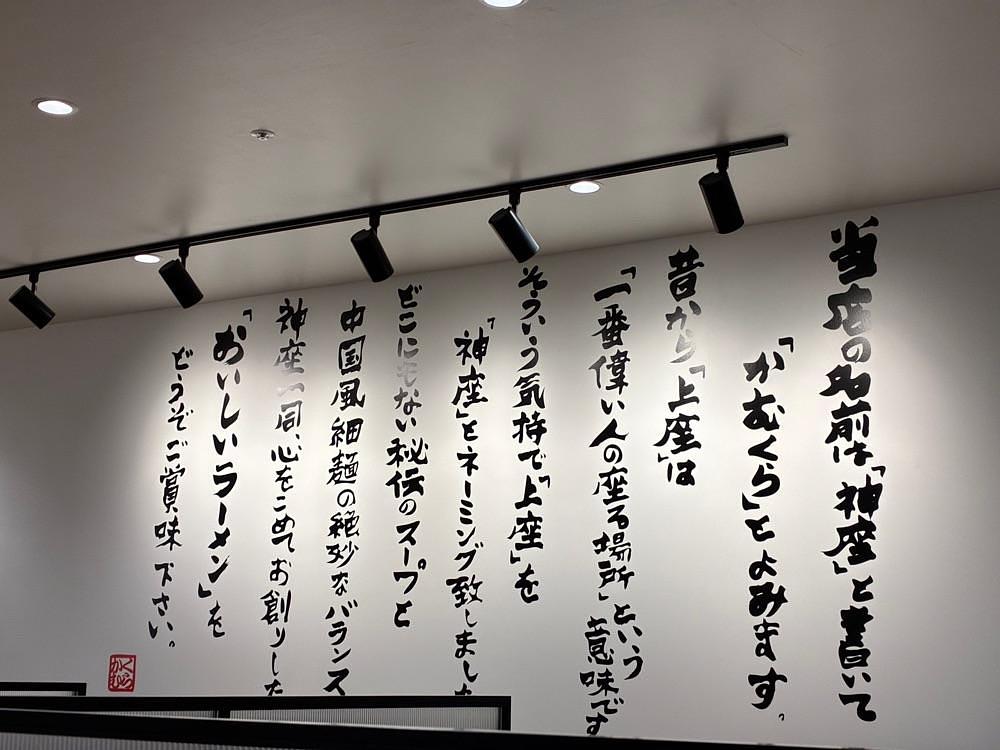 当店の名前は「神座」と書いて
「かむくら」とよみます。
昔から「上座」は
「一番偉い人の座る場所」という
意味です
そういう気持で「上座」を
「神座」とネーミング致しました
どこにもない秘伝のスープと
中国風細麺の絶妙なバランス
神座一同、心をこめてお創りした
「おいしいラーメン」を
どうぞご賞味下さい。
かむくら